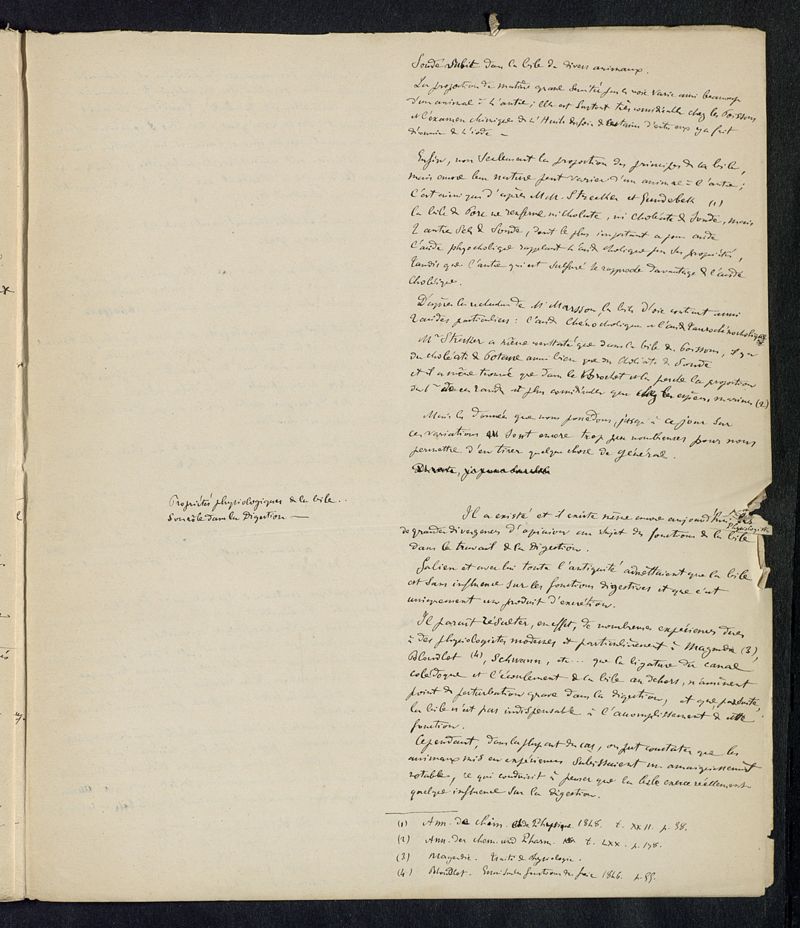 Soude subit dans la bile de divers animaux.
La proportion de matière grasse varie aussi beaucoup
d'un animal à l'autre ; elle est surtout très considérable chez les Poissons
et l'examen chimique de l'Huile de foie de certains d'entre eux y a fait
découvrir de l'iode —
Enfin, non seulement la proportion des principes de la bile,
mais encore leur nature peut varier d'un animal à l'autre ;
C'est ainsi que d'après M.M. Strecker et Gundelach (1)
la bile de Porc ne renferme ni cholate, ni choléate de Soude, mais
2 autres Sels de Soude, dont le plus important a pour acide
l'acide hyocholique rappelant l'acide cholique par ses propriétés,
tandis que l'autre qui est sulfuré se rapproche davantage de l'acide
choléique.
D'après les recherches de Mr Marsson, la bile d'oie contient aussi
2 acides particuliers : l'acide Chénocholique et l'acide taurochénocholique
Mr Strecker a même constaté que dans la bile de Poissons, il y a
du choléate de Potasse aussi bien que du choléate de Soude
et il a même trouvé que dans le Brochet et la perche la proportion
du 1er de ces 2 acides est plus considérable que chez les espèces marines (2)
Mais les données que nous possédons, jusqu'à ce jour sur
ces variations sont encore trop peu nombreuses pour nous
permettre d'en tirer quelque chose de général.
Propriétés physiologiques de la bile..
Son rôle dans la Digestion —
Il a existé et il existe même encore aujourd'hui, parmi les Physiologistes
de grandes divergences d'opinion au sujet des fonctions de la bile
dans le travail de la Digestion.
Galien et avec lui toute l'antiquité admettaient que la bile
est sans influence sur les fonctions digestives et que c'est
uniquement un produit d'excrétion.
Il paraît résulter, en effet, de nombreuses expériences dues
à des physiologistes modernes et particulièrement à Magendie (3),
Blondlot (4), Schwann, etc... que la ligature du canal
cholédoque et l'écoulement de la bile au dehors, n'amènent
point de perturbation grave dans la digestion, et que, par suite,
la bile n'est pas indispensable à l'accomplissement de cette
fonction.
Cependant, dans la plupart des cas, on put constater que les
animaux mis en expériences subissaient un amaigrissement
notable, ce qui conduisit à penser que la bile exerce réellement
quelque influence sur la digestion.
(1) Ann. de chim. et de Physique 1848. t. XXII. p. 38.
(2) Ann. der chem. und Pharm. t. LXX. p. 178.
(3) Magendie. Traité de Physiologie.
(4) Blondlot. Essai sur les fonctions du foie 1846. p. 55.